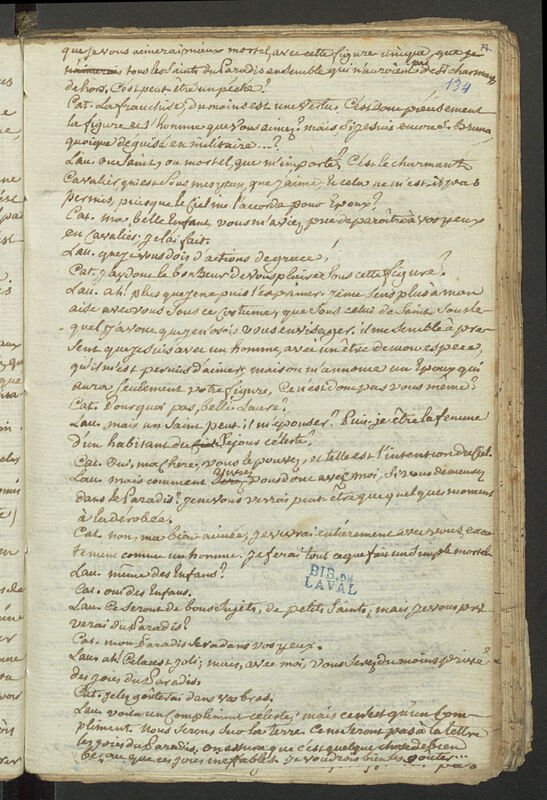 que je vous aimerai mieux mortel, avec cette figure unique, que je
n'aimerais tous les Saints du Paradis ensemble qui n'auroient pas de si charmans
134
dehors. C'est peut être un péché?
Cat. La franchise, du moins est une vertu. C'est donc pieusement
la figure et l'homme que vous aimez? mais si je suis encore S. Bruno
quoique déguisé en militaire...?
Lau. ou Saint, ou mortel, que m'importe? C'est le charmant
Cavalier qui est sous mes yeux, que j'aime. Et cela ne m'est-il pas
permis, puisque le Ciel me l'accorda pour Epoux?
Cat. ma belle Enfant, vous m'aviez prié de paroître à vos yeux
en Cavalier. je l'ai fait.
Lau. que je vous dois d'actions de grace!
Cat. J'ay donc le bonheur de vous plaire sous cette figure?
Lau. ah! plus que je ne puis l'exprimer. je me sens plus à mon
aise avec vous sous ce Costume, que sous celui de Saint, sous le
quel j'avoue que je n'osois vous envisager. il me semble à pre-
sent que je suis avec un homme, avec un être de mon espece,
qu'il m'est permis d'aimer; mais on m'annonce un Epoux qui
aura seulement votre figure. Ce n'est donc pas vous même?
Cat. Pourquoi pas, belle Laure?
Lau. mais un Saint peut-il m'épouser? Puis-je être la femme
d'un habitant du séjour céleste?
Cat. Oui, ma chere, vous le pouvez, et telle est l'intention du Ciel.
Lau. mais comment vivrez vous donc avec moi, si vous demeurez
dans le Paradis? je ne vous verrai peut-etre que quelques momens
à la dérobée.
Cat. non, ma bien aimée, je vivrai entierement avec vous, exac
tement comme un homme. je ferai tout ce que fait un simple mortel
Lau. même des Enfans?
Cat. oui des Enfans.
BIB. DE
LAVAL
Lau. Ce seront de bons Sujets, de petits Saints; mais je vous pri
verai du Paradis?
Cat. mon Paradis sera dans vos yeux.
Lau. ah! Cela est joli; mais, avec moi, vous serez du moins privé
des joies du Paradis.
Cat. je les goûterai dans vos bras.
Lau. voila un Compliment céleste; mais ce n'est qu'un Com-
pliment. Nous serons sur la terre. Ce ne seront pas à la lettre
les joies du Paradis. on assure que c'est quelque chose de bien
beau que ces joies ineffables. Je voudrois bien les goûter...